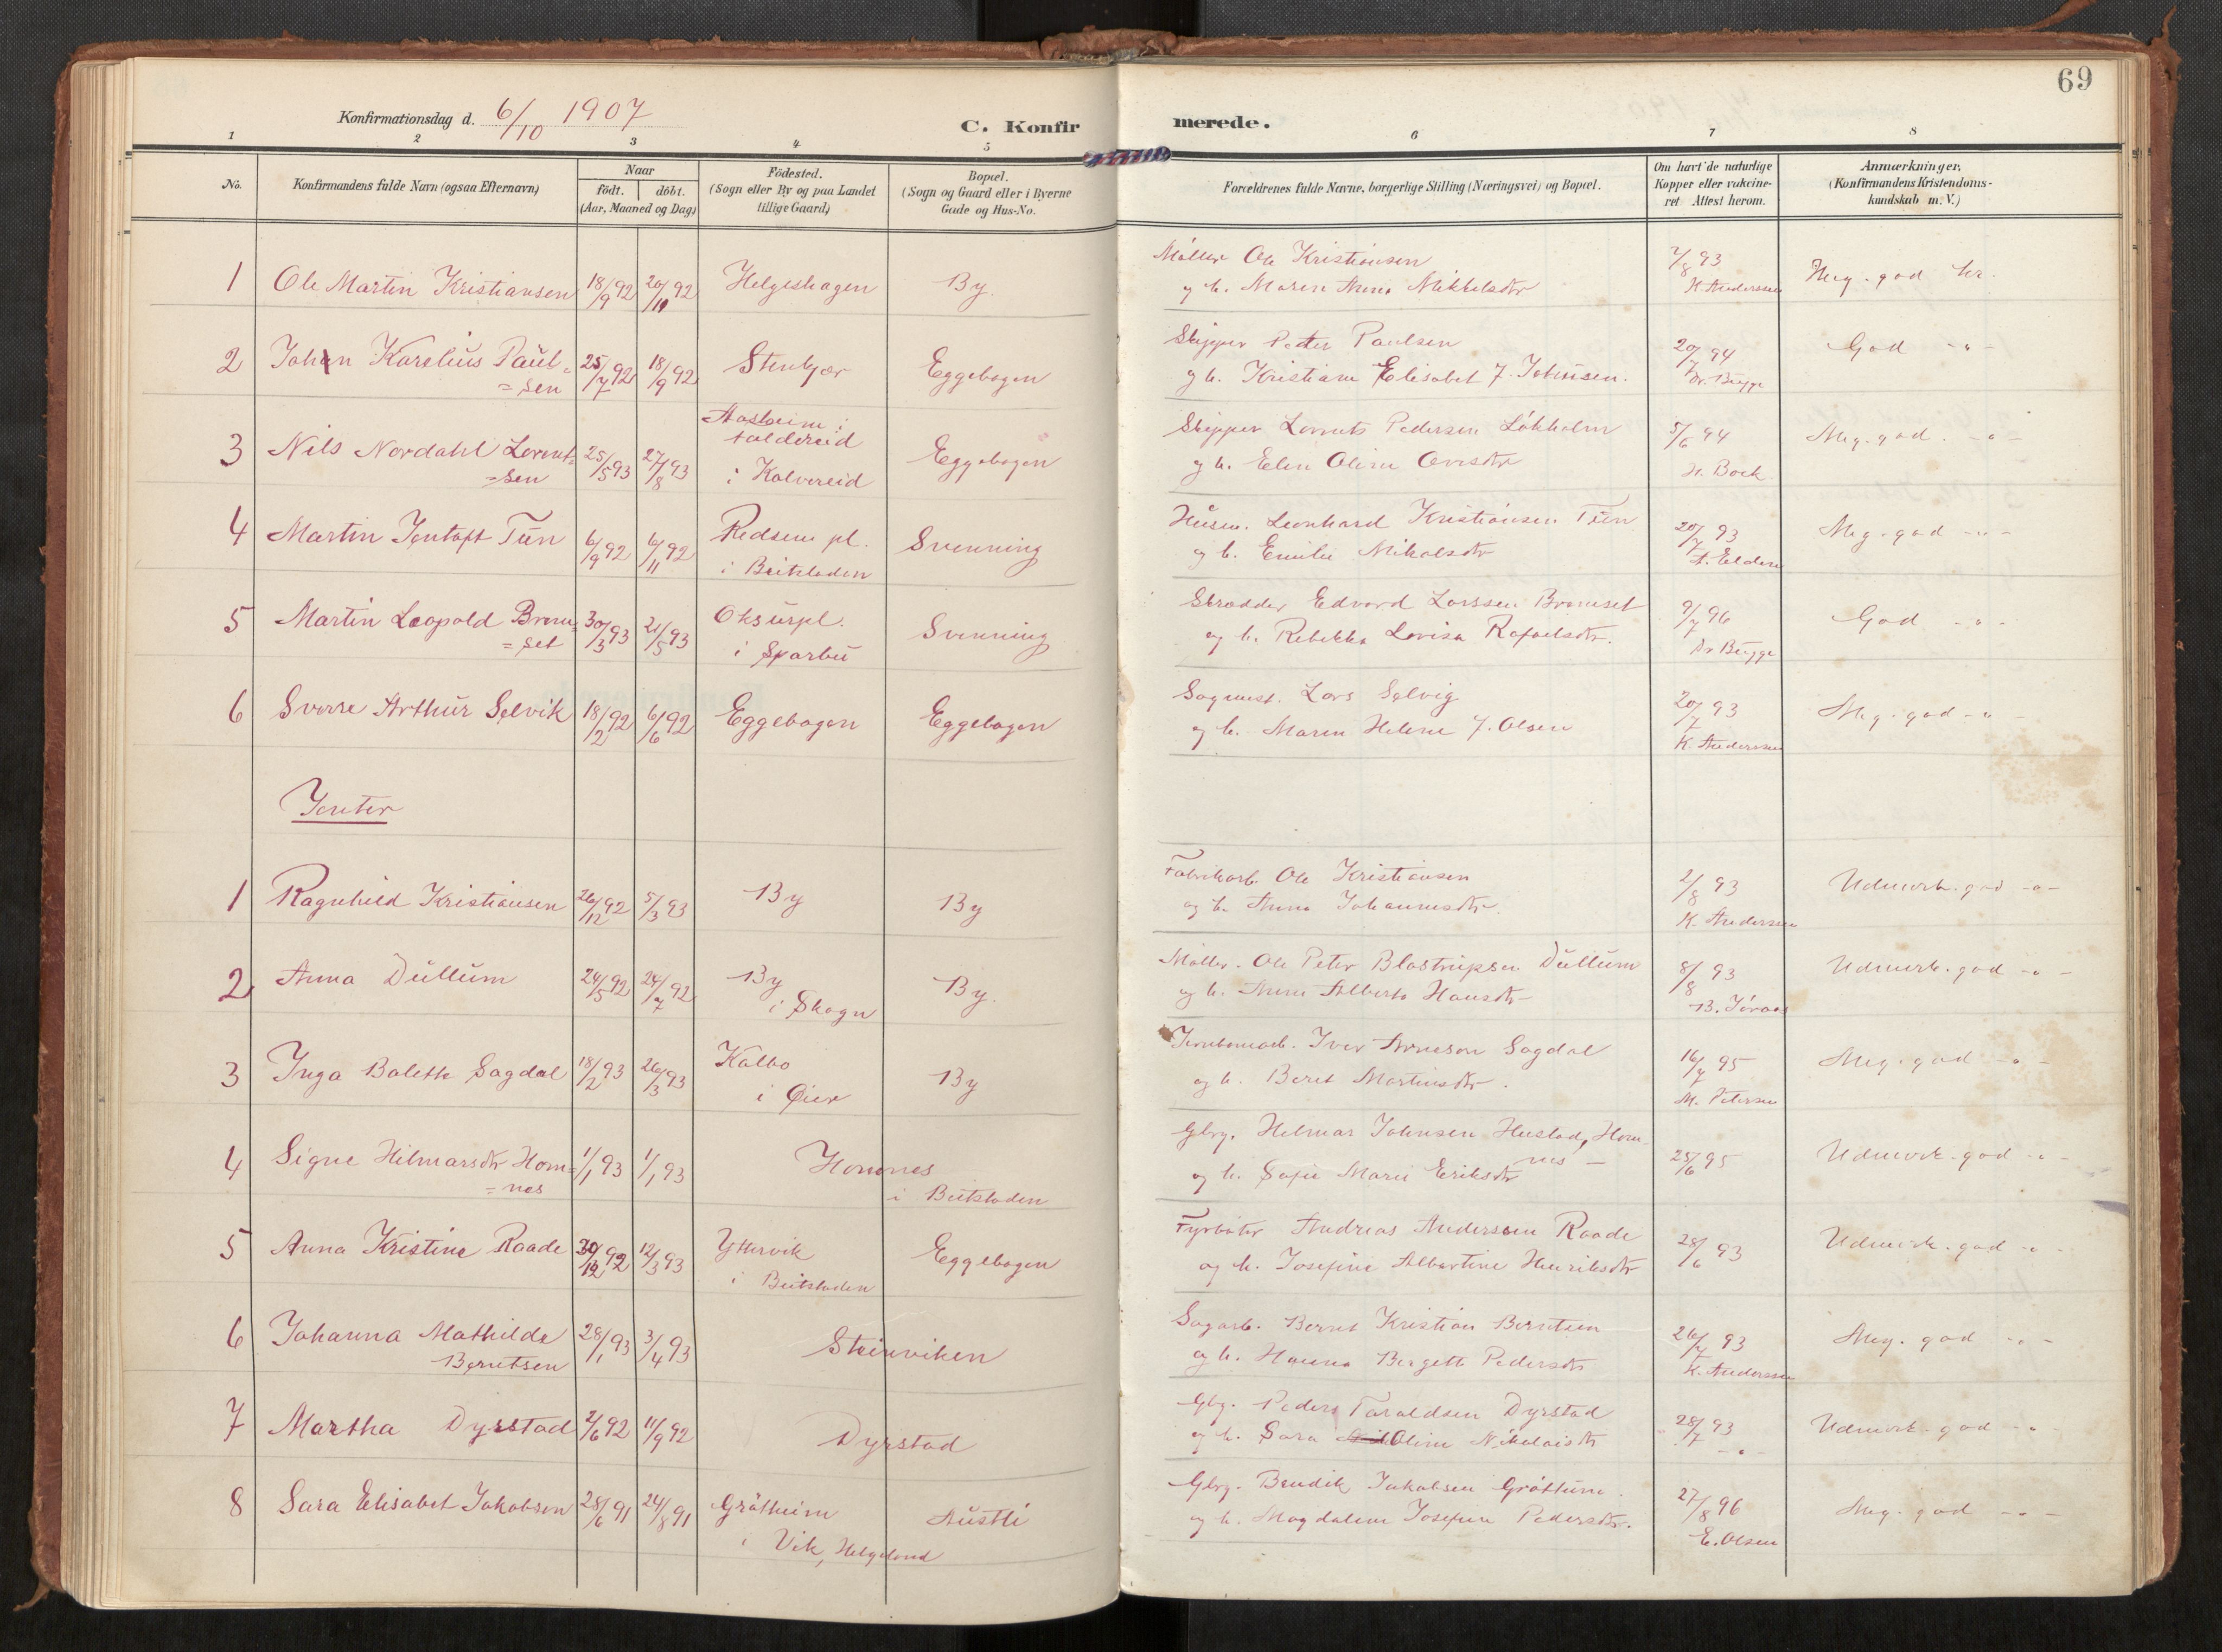 69
Konfirmationsdag d. 6/10 1907
C. Konfirmerede.
1 2 3 4 5 6 7 8
No. Konfirmandens fulde Navn (ogsaa Efternavn) Naar født. døbt. (Aar, Maaned og Dag) Fødested. (Sogn eller By og paa Landet tillige Gaard) Bopæl. (Sogn og Gaard eller i Byerne Gade og Hus-No. Forældrenes fulde Navne, borgerlige Stilling (Næringsvei) og Bopæl. Om havt de naturlige Kopper eller vakcineret Attest herom. Anmærkninger. (Konfirmandens Kristendomskundskab m. V.)
1 Ole Martin Kristiansen 18/9 92 20/11 92 Helgeshagen By. Møller Ole Kristiansen 2/8 93 Meg. god
og h. Maren Anna Mikkelsdtr K Anderssen
2 Johan Karelius Paul= 25/7 92 18/9 92 Stenkjær Eggebogen Skipper Peter Paulsen 20/7 94 God -"-
=sen og h. Kristiane Elisabet f. Johnsen. Dr. Bugge
3 Nils Nordahl Lorent= 25/5 93 27/8 93 Aasheim i Foldereid Eggebogen Skipper Lornts Pedersen Løkholm 5/6 94 Meg. god. -"-
=sen i Kolvereid og h. Elen Oline Ovesdtr Bock
4 Martin Jentoft Tun 6/9 92 6/11 92 Redsem pl. Svenning Husm. Leonhard Kristiansen Tun 20/7 93 Meg. god -"-
i Beitstaden og h. Emilie Mikalsdtr Elden
5 Martin Leopold Brem= 30/3 93 21/5 93 Oksurpl. Svenning Skrædder Edvard Larssen Bremset 9/7 96 God -"-
=set i Sparbu og h. Rebekka Lovisa Rafaelsdtr. Dr Bugge
6 Sverre Arthur Selvik 18/2 92 6/6 92 Eggebogen Eggebogen Sagmest. Lars Selvig 20/7 93 Meg. god -"-
og h. Maren Helene f. Olsen K. Anderssen
Jenter
1 Ragnhild Kristiansen 26/12 92 5/3 93 By By Fabrikarb. Ole Kristiansen 2/8 93 Udmerk. god -"-
og h. Anna Johannesdtr. K. Anderssen
2 Anna Dullum 24/5 92 24/7 92 By By. Møller. Ole Peter Blastrupsen Dullum 8/8 93 Udmerk. god -"-
i Skogn og h. Anne Alberta Hansdtr
3 Inga Balette Sagdal 18/2 93 26/3 93 Kalbo By Jernbanearb. Iver Arneson Sagdal 16/7 95 Meg. god -"-
i Øier og h. Beret Martinsdtr. M. Petersen
4 Signe Hilmarsdtr Hom= 1/1 93 1/1 93 Homnes Gbrg. Helmar Johnsen Hustad, Hom- 25/6 95 Udmerk. god -"-
=nes i Beitstaden og h. Sofie Marie Eriksdtr nes
5 Anna Kristine Raade 30/12 92 12/3 93 Yttervik Eggebogen Fyrbøter Andreas Anderssen Raade 28/6 93 Udmerk. god -"-
i Beitstaden og h. Josefine Albertine Henriksdtr
6 Johanna Mathilde 28/1 93 3/4 93 Steinviken Sagarb. Bernt Kristian Berntsen 26/7 93 Meg. god -"-
Berntsen og h. Hanna Bergette Pedersdtr K. Anderssen
7 Martha Dyrstad 2/6 92 11/9 92 Dyrstad Gbrg. Peder Taraldsen Dyrstad 28/7 93 Udmerk. god -"-
og h. Sara Oline Nikolaisdtr -"-
8 Sara Elisabet Jakobsen 28/6 91 24/8 91 Grøtheim Austli Gbrg. Bendik Jakobsen Grøttum 27/8 96 Meg. god -"-
i Vik, Helgeland og h. Magdalene Josefine Pedersdtr. E. Olsen